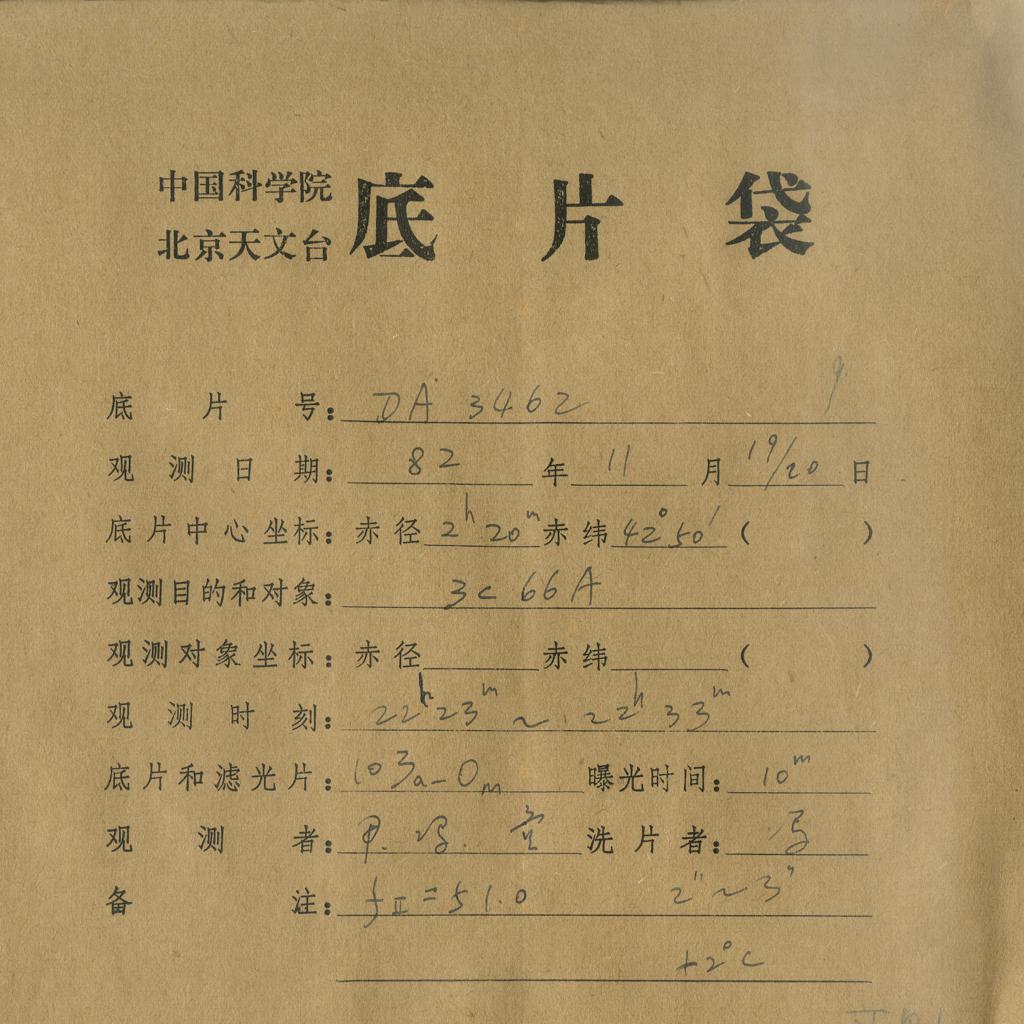 中国科学院
北京天文台
底片袋
底片号：DA 3462
观测日期：82年11月19/20日
底片中心坐标：赤径2h 20m赤纬42°50′（ ）
观测目的和对象：3c 66A
观测对象坐标：赤径 赤纬 （ ）
观测时刻：22h23m ~ 22h33m
底片和滤光片：103a-Om 曝光时间：10m
观测者： 洗片者：冯
备注：fII=51.0 2"~3"
+2°C